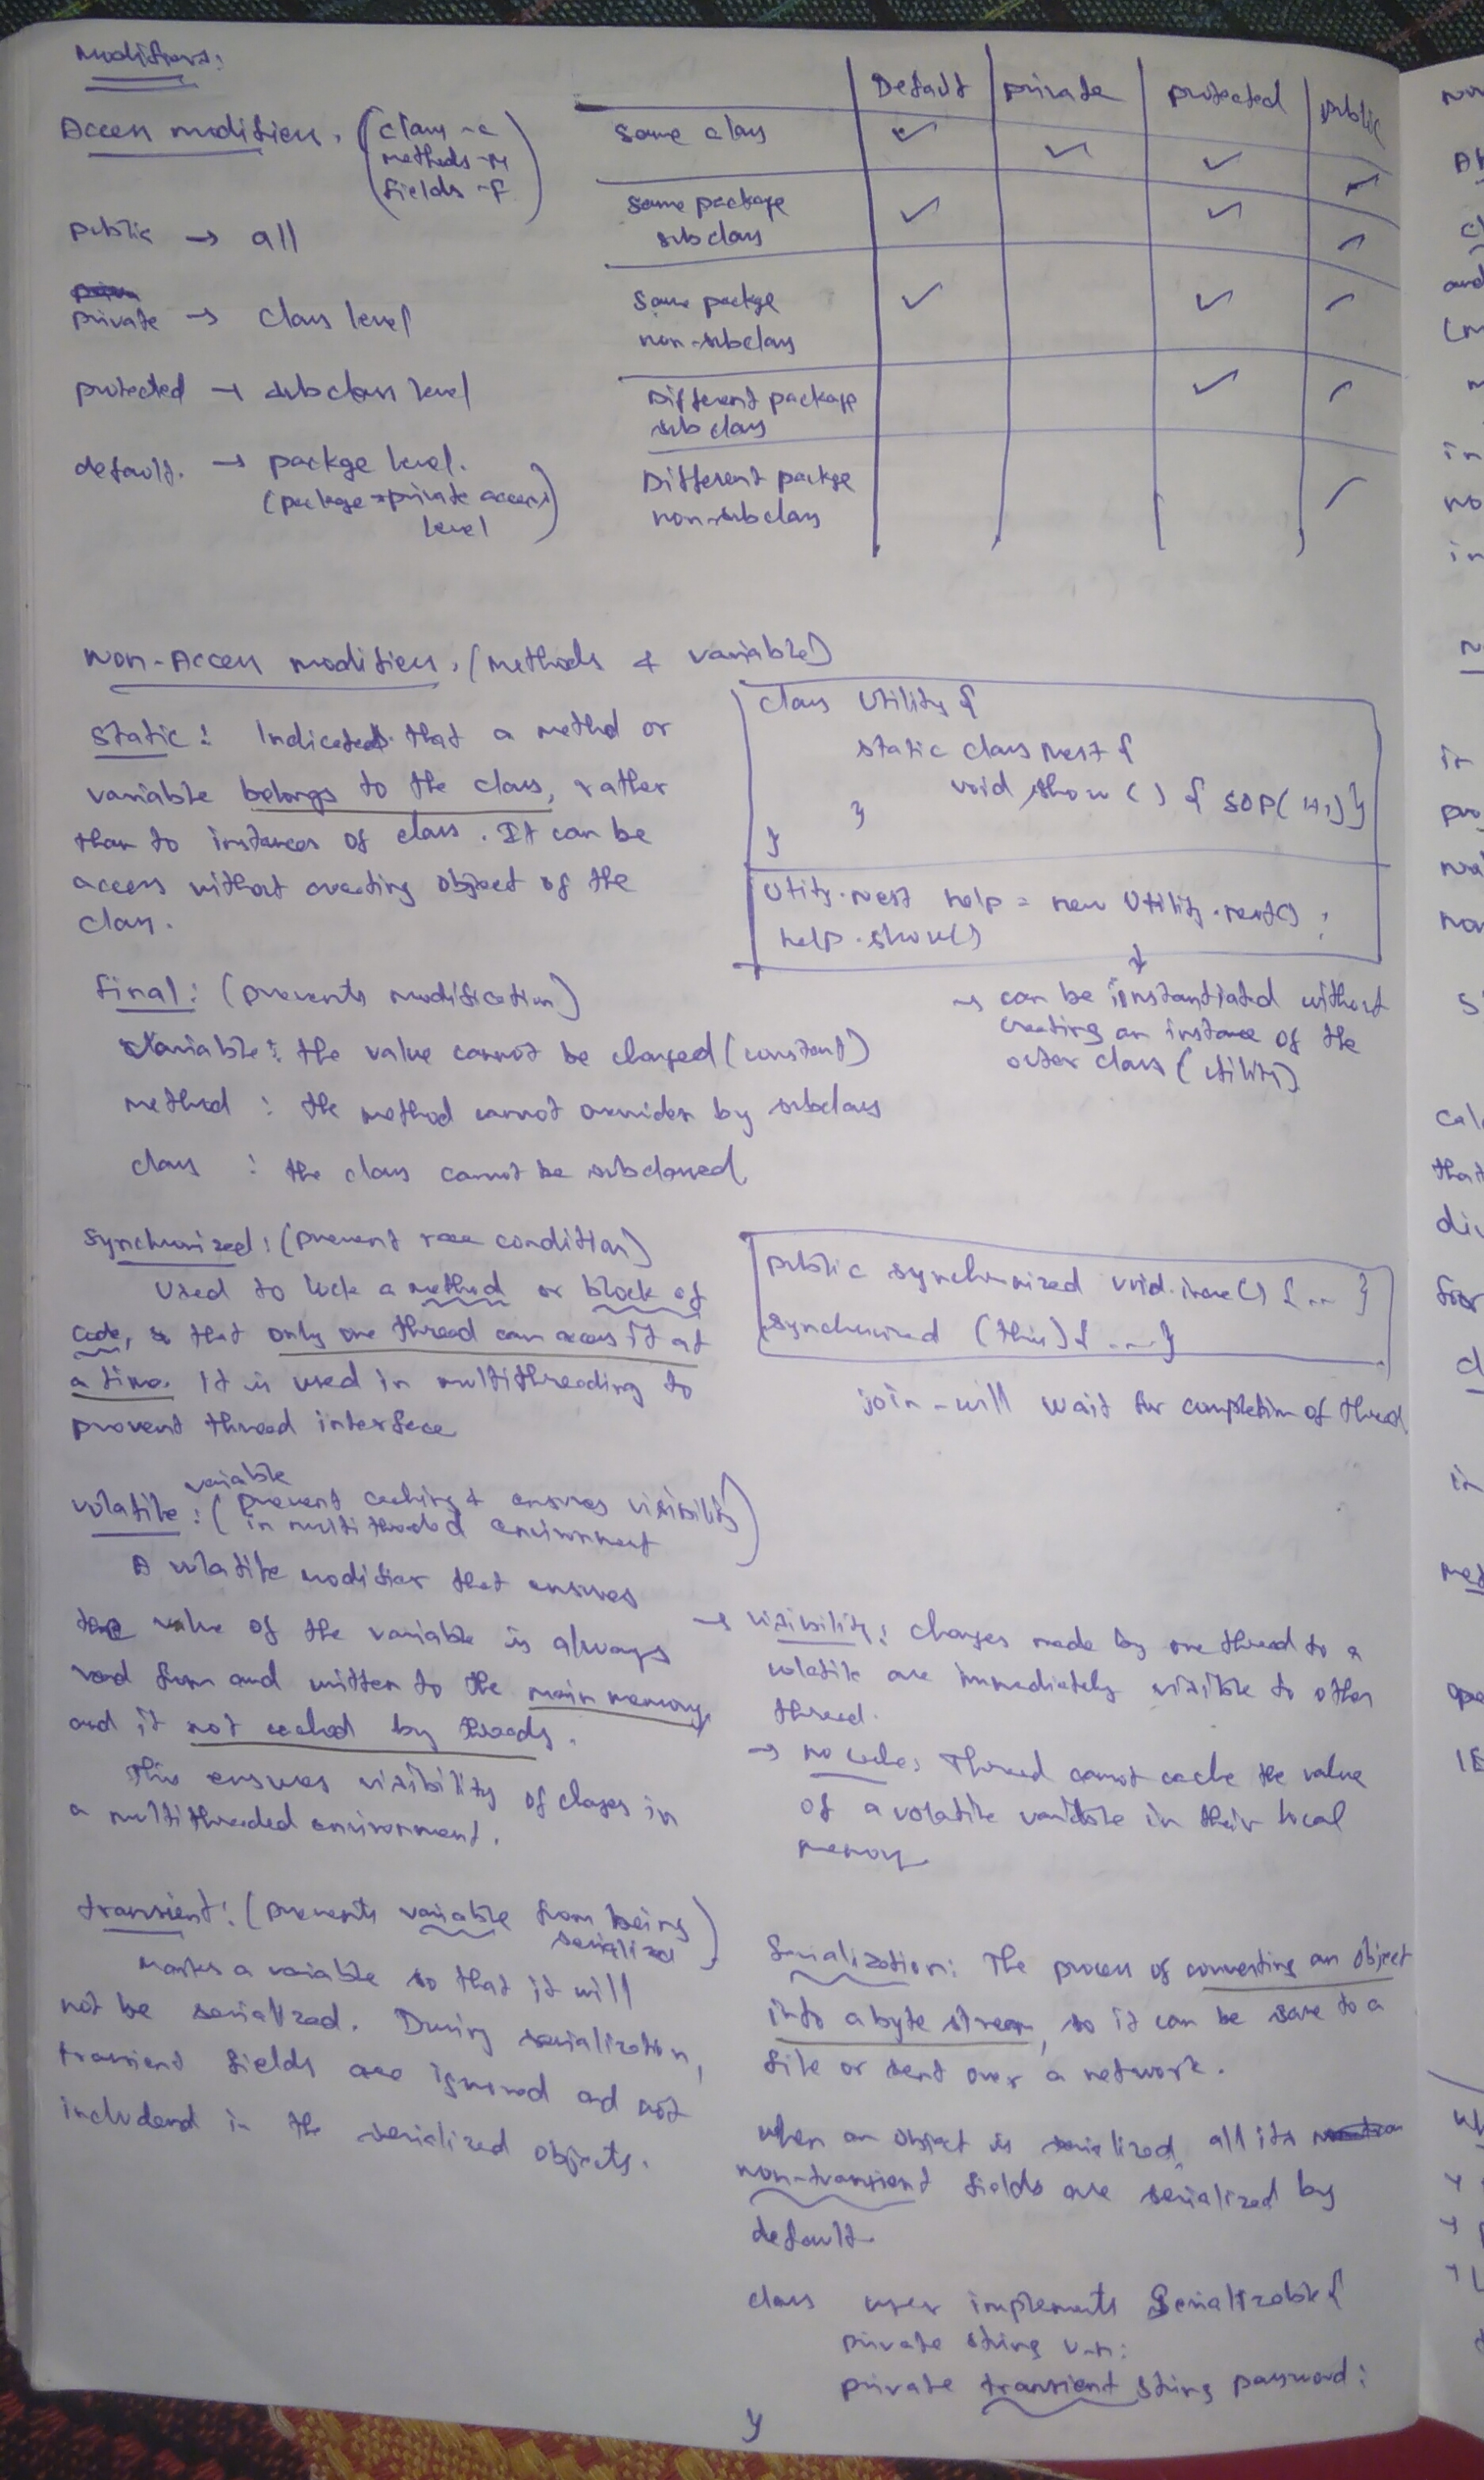 Modifiers:
Access modifiers. (class - c
methods - M
fields - F)
public → all
private → class level
protected → subclass level
default. → packge level.
(package-private access level)
Default | private | protected | public
same class ✓ ✓ ✓ ✓
same package subclass ✓ ✓ ✓
same packge non-subclass ✓ ✓ ✓
Different package sub class ✓ ✓
Different packge non-subclass ✓
Non-Access modifiers. (methods & variable)
static: Indicates that a method or
variable belongs to the class, rather
than to instances of class. It can be
access without creating object of the
class.
class Utility {
static class Nest {
void show () { SOP(Hi) }
}
}
Utity.Nest help = new Utility.nest() ;
help.show()
→ can be instantiated without
creating an instance of the
outer class (utility)
final: (prevents modification)
variable: the value cannot be changed (constant)
method : the method cannot overriden by subclass
class : the class cannot be subclassed
Synchronized: (prevent race condition)
Used to lock a method or block of
code, so that only one thread can access it at
a time. It is used in multithreading to
prevent thread interfece
public synchronized void incre() { ... }
synchronized (this) { ... }
join - will wait for completion of thread
volatile: (variable prevent caching & ensures visibility
in multithreaded environment)
A volatile modifier that ensures
the value of the variable is always
read from and written to the main memory,
and it not cached by threads.
This ensures visibility of chages in
a multithreaded environment.
→ visibility: changes made by one thread to a
volatile are immediately visible to other
thread.
→ no cache: Thread cannot cache the value
of a volatile variable in their local
memory
transient: (prevents variable from being
serialized)
Marks a variable so that it will
not be serialized. During serialization,
transient fields are ignored ad not
includend in the serialized objects.
Serialization: The process of converting an object
into a byte stream, so it can be save to a
file or sent over a network.
when an object is serialized, all its
non-transient fields are serialized by
default
class user implements Serializable {
private string u-n;
private transient string password;
}